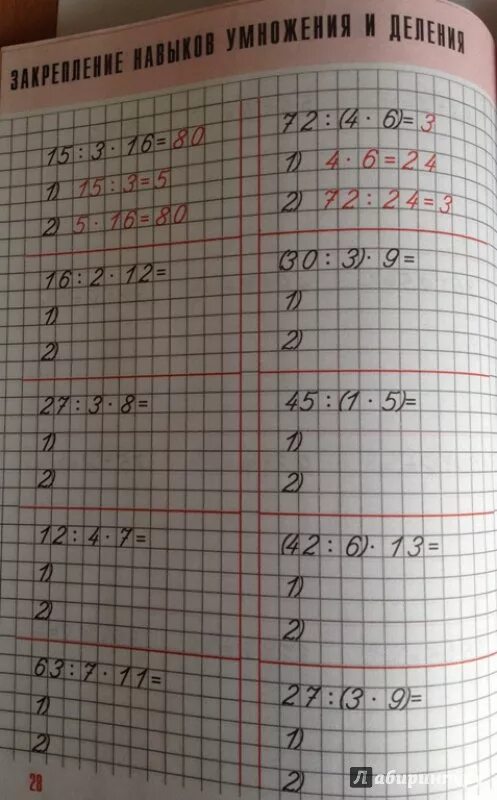 ЗАКРЕПЛЕНИЕ НАВЫКОВ УМНОЖЕНИЯ И ДЕЛЕНИЯ
15 : 3 · 16 = 80
1) 15 : 3 = 5
2) 5 · 16 = 80
16 : 2 · 12 =
1)
2)
27 : 3 · 8 =
1)
2)
12 : 4 · 7 =
1)
2)
63 : 7 · 11 =
1)
2)
72 : (4 · 6) = 3
1) 4 · 6 = 24
2) 72 : 24 = 3
(30 : 3) · 9 =
1)
2)
45 : (1 · 5) =
1)
2)
(42 : 6) · 13 =
1)
2)
27 : (3 · 9) =
1)
2)
28
Лабиринт